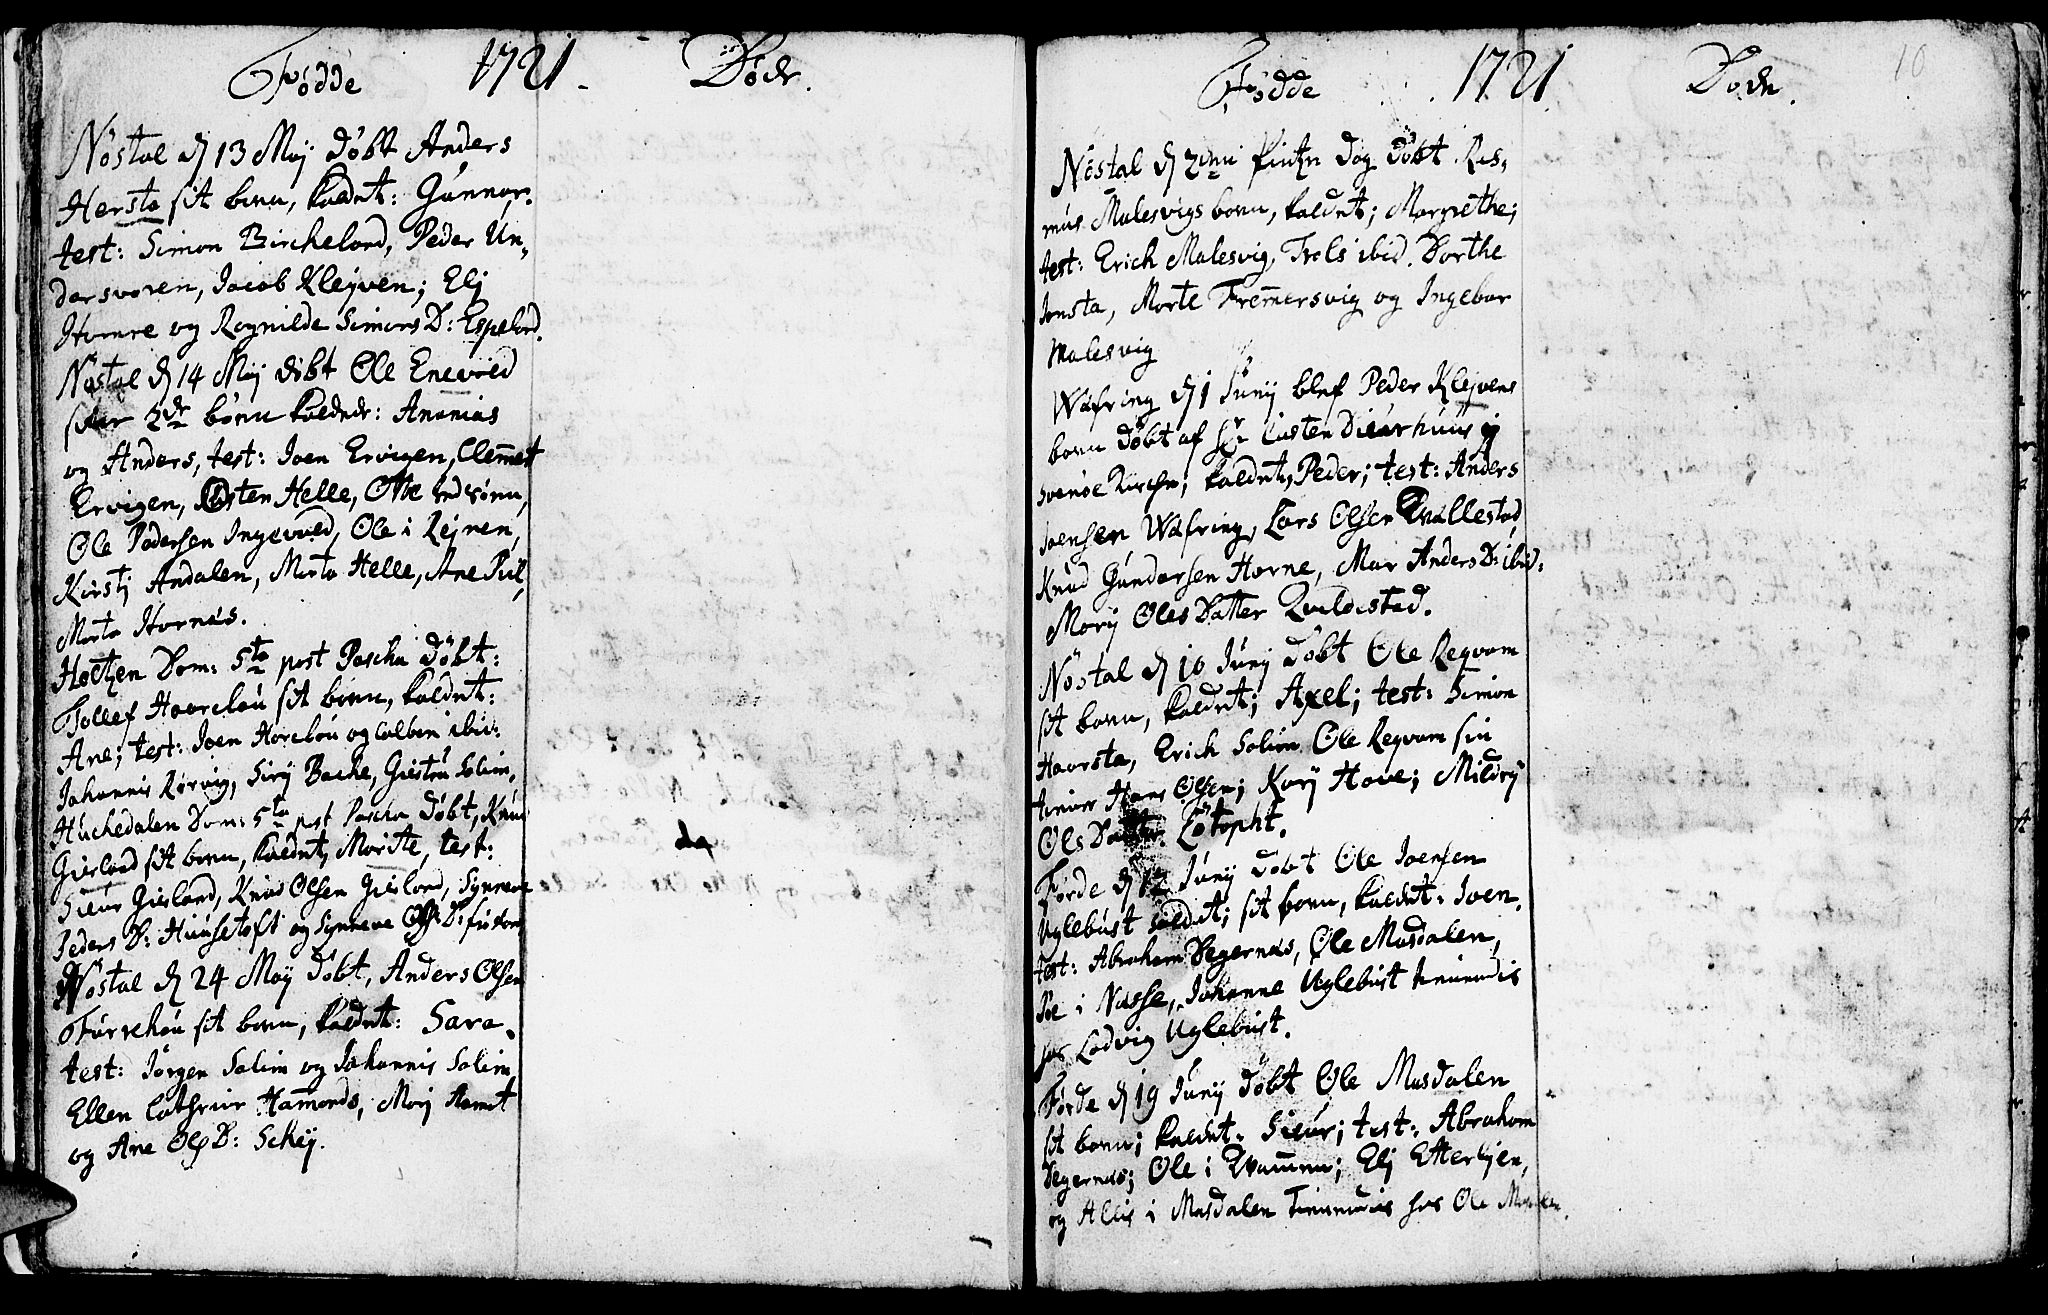 Fødde 1721. Døde.
Nøstal d 13 Maij døbt Anders
Hersta sit barn, kaldet: Gunnar.
test: Simon Birchelord, Peder Un,
darsvoren, Jacob Klejven; Elj
Homre og Ragnilde Simons D: Espelord.
Nøstal d 14 Maij døbt Ole Enevold
2de børn kaldede: Ananias
og Anders, test: Joen Ervigen, Clemmet
Ervigen, Østen Helle, Otte
Ole Pedersen Ingevold, Ole i Rejnen,
Kirstj Andalen, Marta Helle, Ane
Marta Hornæs.
Holtzen Dom: 5ta post Pascha døbt:
Tollef Haarelou sit barn, kaldet:
Ane; test: Joen Horelou og Colben ibid:
Johannis Rørvig, Sirj Backe, Giestru Solim,
Huchedalen Dom: 5ta post Pascha døbt, Knud
Gierland sit barn, kaldet, Marite, test:
Sieur Gierland, Knud Olsen Gierland, Synneve
Peders D: Huusetoft og Synneve Ols D:
Nøstal d 24 Maij døbt, Anders Olsen
Furrehou sit barn, kaldet: Sara.
test: Jørgen Solim og Johannis Solim
Ellen Cathrine Hammonds, Marj
og Ane Ols D: Schej.
da
Fødde 1721 Døde. 10
Nøstal d 2den Pintze dag døbt Ras,
mus Malesvigs barn, kaldet; Margrethe;
test: Erich Malesvig, Trols ibid. Dorthe
Jonsta, Marte Fremmersvig og Ingebor
Malesvig
Wefring d 1 Junij blef Peder Klejvens
barn døbt af Hr Casten i
Svenøe Kirche, kaldet, Peder; test: Anders
Joensen Wefring, Lars Olsen Qvallestad,
Knud Gundersen Horne, Mar Anders D: ibid:
Marj Oles Datter Qvaldestad.
Nøstal d 10 Junij døbt Ole Reqvam
sit barn, kaldet; Axel; test: Simon
Haarsta, Erich Solim Ole Reqvam sin
tiener Hans Olsen; Karj Hove; Mildrij
Ols Datter
Førde d 12 Junij døbt Ole Joensen
Uglebust soldat; sit barn, kaldet: Joen.
test: Abraham Degernæs, Ole Masdalen,
Joe i Nasse, Johanne Uglebust
hos Lodvig Uglebust.
Førde d 19 Junij døbt Ole Masdalen
sit barn; kaldet: Sieur; test: Abraham
Degernæs; Ole i Qvammen; Elj
og Allis i Masdalen hos Ole